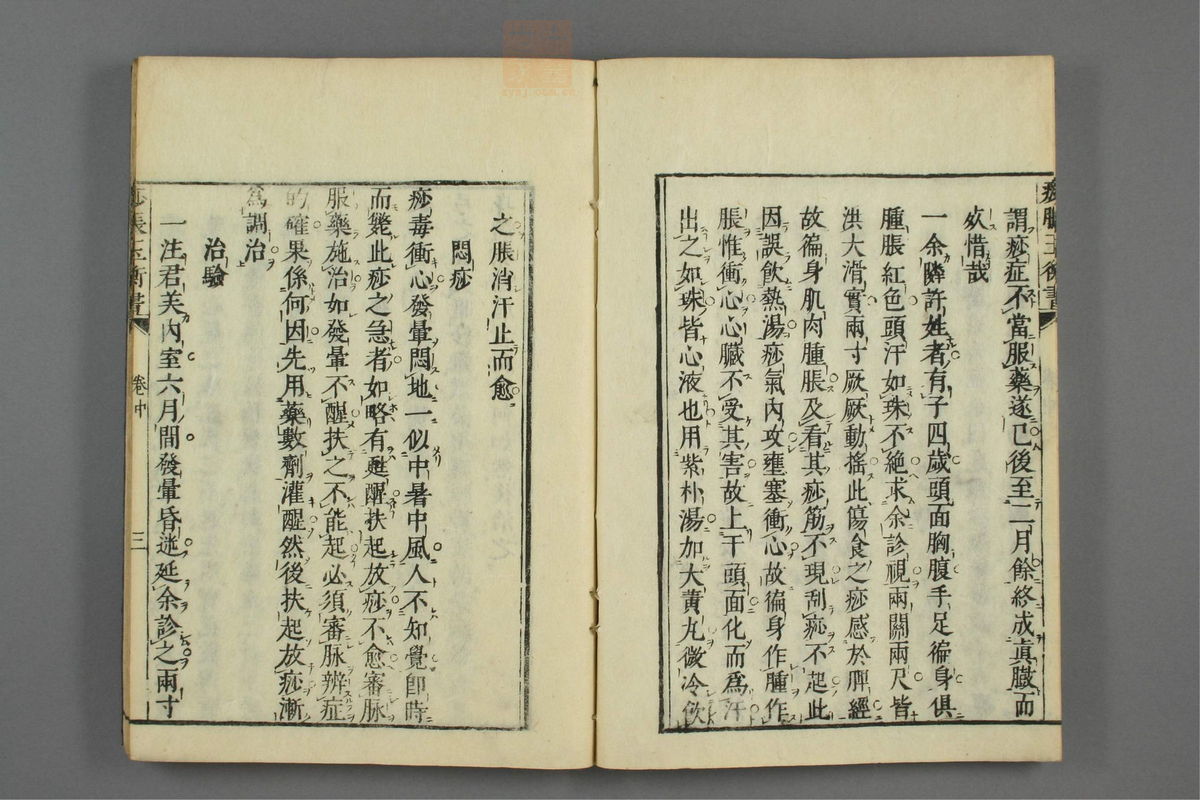 痧脹玉衡書
謂痧症不當服藥遂已後至二月餘終成眞臟而
歿惜哉
一余隣許姓者有子四歲頭面胸腹手足徧身俱
腫脹紅色頭汗如珠不絕求余診視兩關兩尺皆
洪大滑實兩寸厥厥動搖此傷食之痧感於脾經
故徧身肌肉腫脹及看其痧筋不現刮痧不起此
因誤飲熱湯痧氣內攻壅塞衝心故徧身作腫作
脹惟衝心心臟不受其害故上干頭面化而爲汗
出之如珠皆心液也用紫朴湯加大黃丸微冷飲
之脹消汗止而愈
悶痧
痧毒衝心發暈悶地一似中暑中風人不知覺卽時
而斃此痧之急者如略有甦醒扶起放痧不愈審脉
服藥施治如發暈不醒扶之不能起必須審脉辨症
的確果係何因先用藥數劑灌醒然後扶起放痧漸
爲調治
治驗
一汪君美內室六月間發暈昏迷延余診之兩寸
痧脹玉衡書
卷中
三